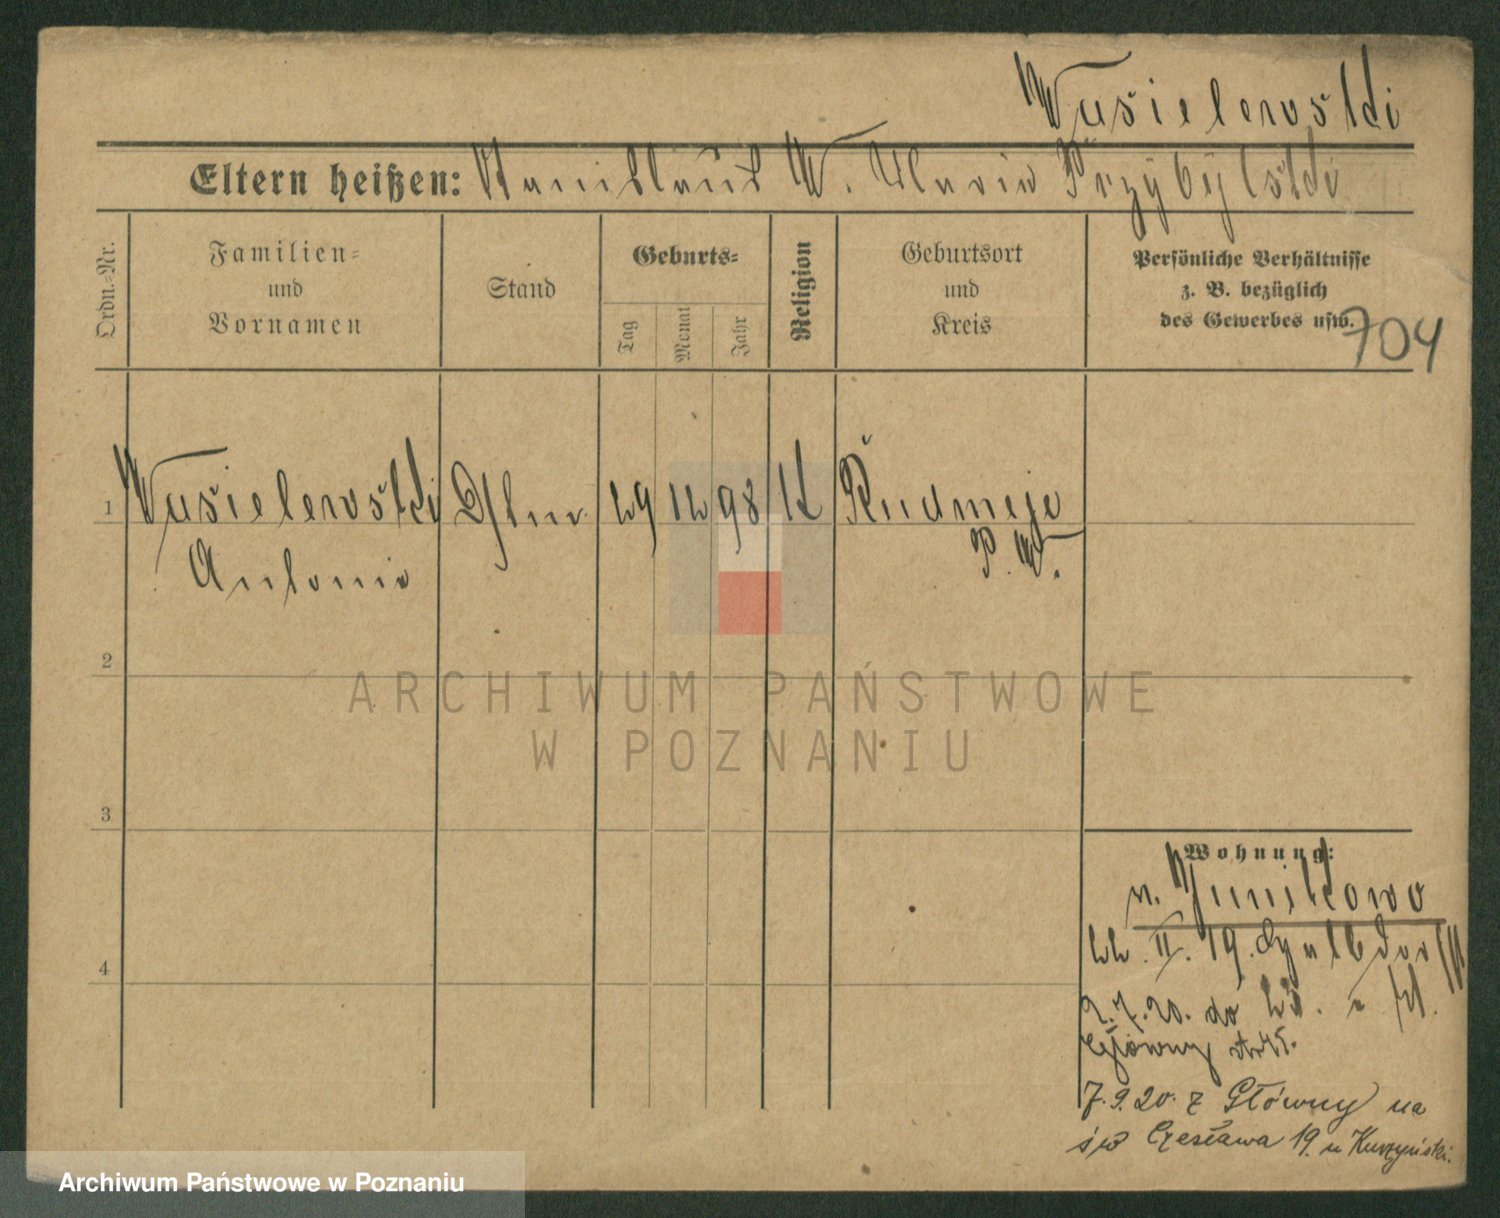 Wasielewski
Eltern heißen: Stanislaus W. Maria Przybylski
Ordn.-Nr.
Familien-
und
Vornamen
Stand
Geburts-
Tag
Monat
Jahr
Religion
Geburtsort
und
Kreis
Persönliche Verhältnisse
z. B. bezüglich
des Gewerbes usw.
704
1 Wasielewski 29 12 98 K
Antonie
P. W.
2
3
4
Wohnung:
v. Junikowo
22. II. 19.
2.7.20. do 23.
Główny
7.9.20. z Główny na
św Czesława 19. u Kurzyński.
ARCHIWUM PAŃSTWOWE
W POZNANIU
Archiwum Państwowe w Poznaniu